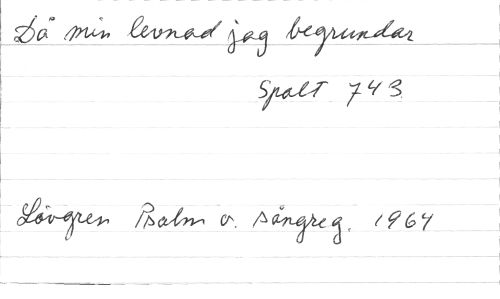 Då min levnad jag begrundar
Spalt 743
Lövgren Psalm o. sångreg. 1964